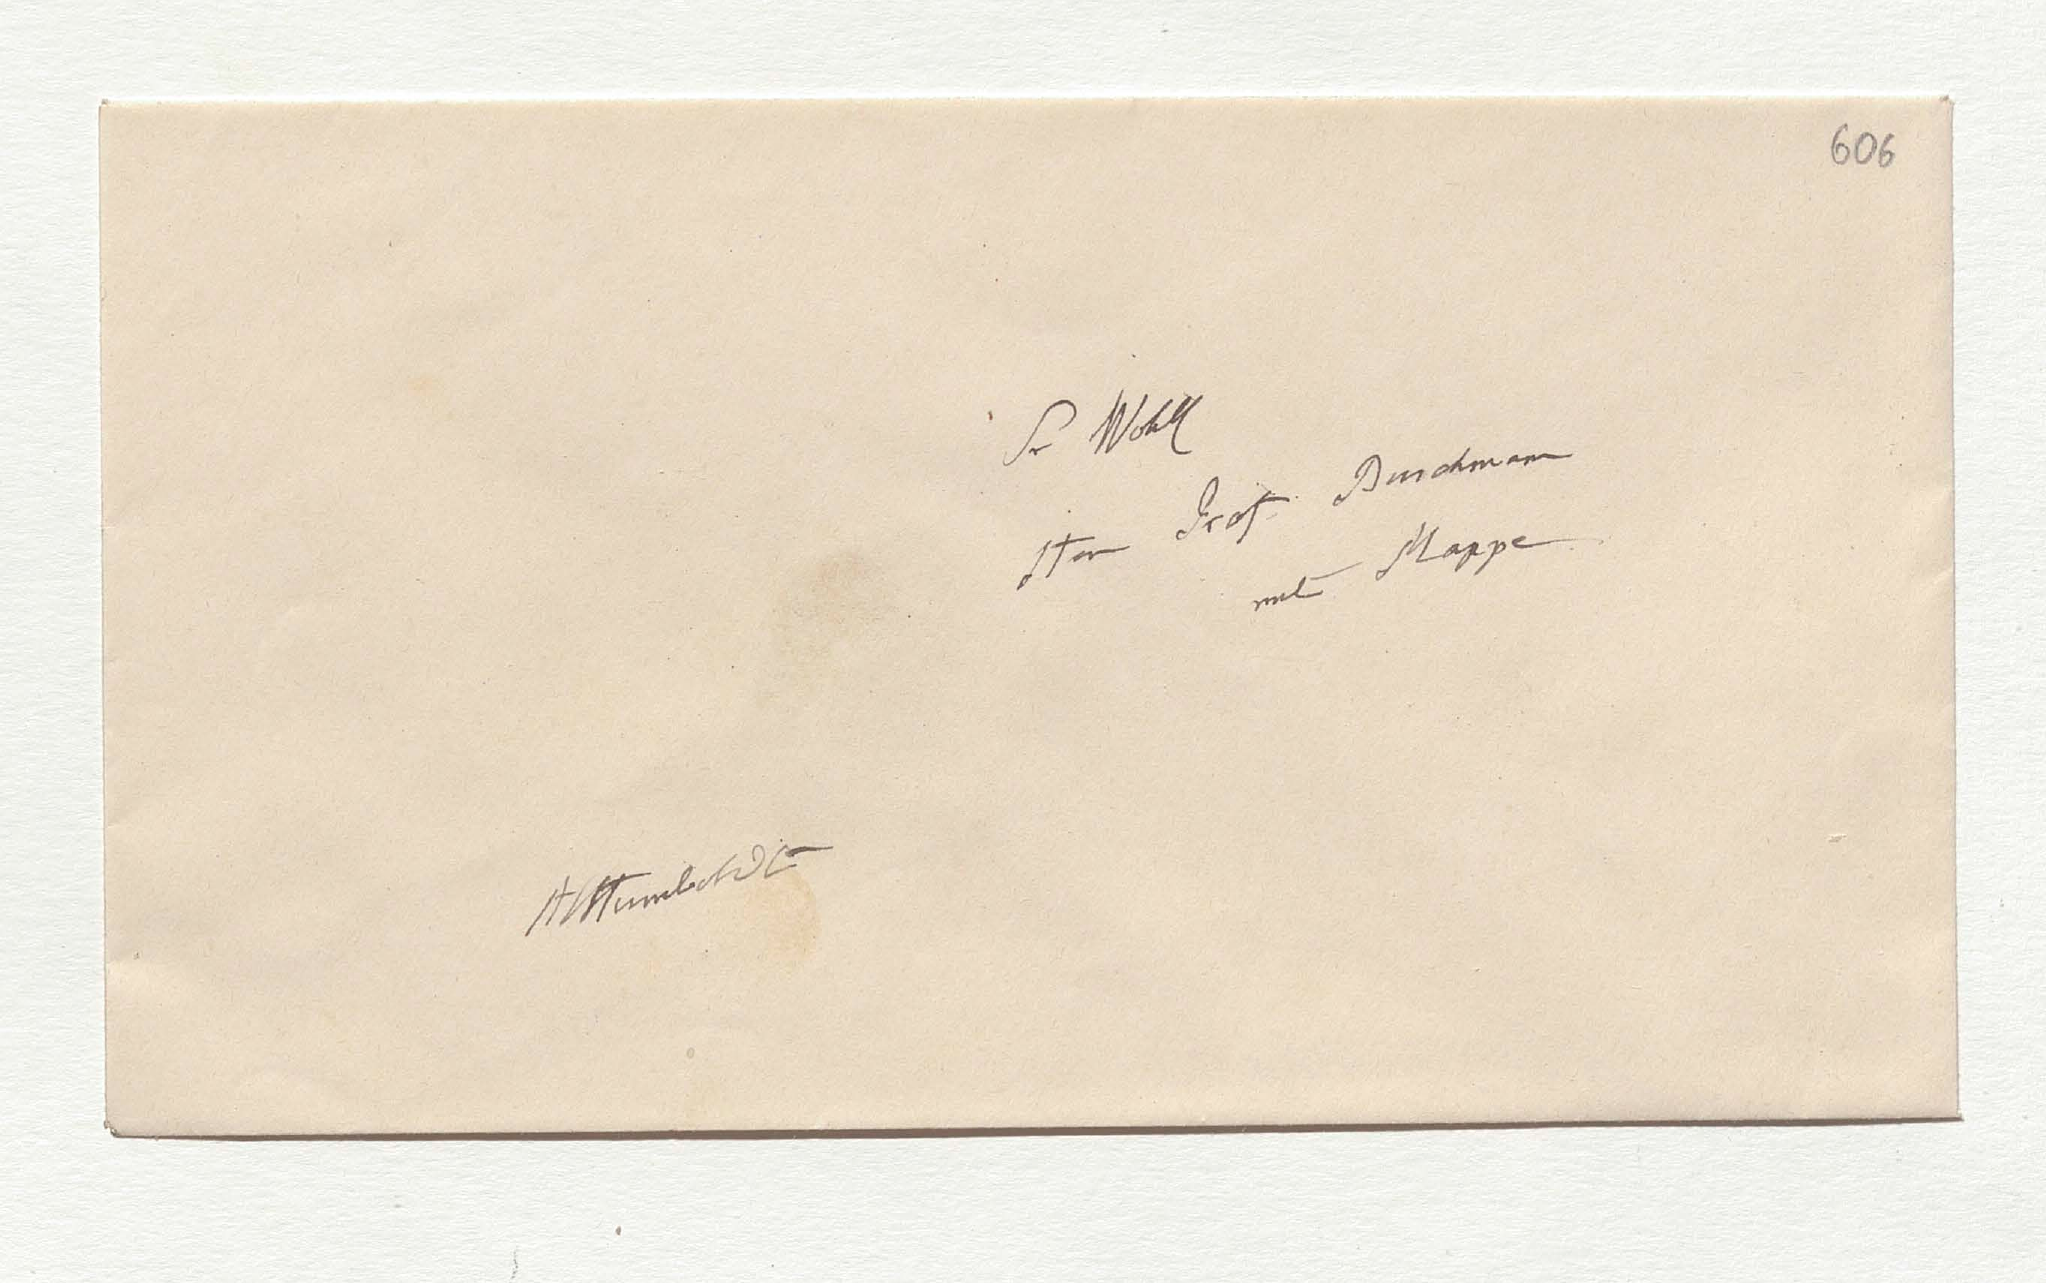 606
Sr Wohlg
Herrn Prof. Buschmann
mit Mappe
AvHumboldt